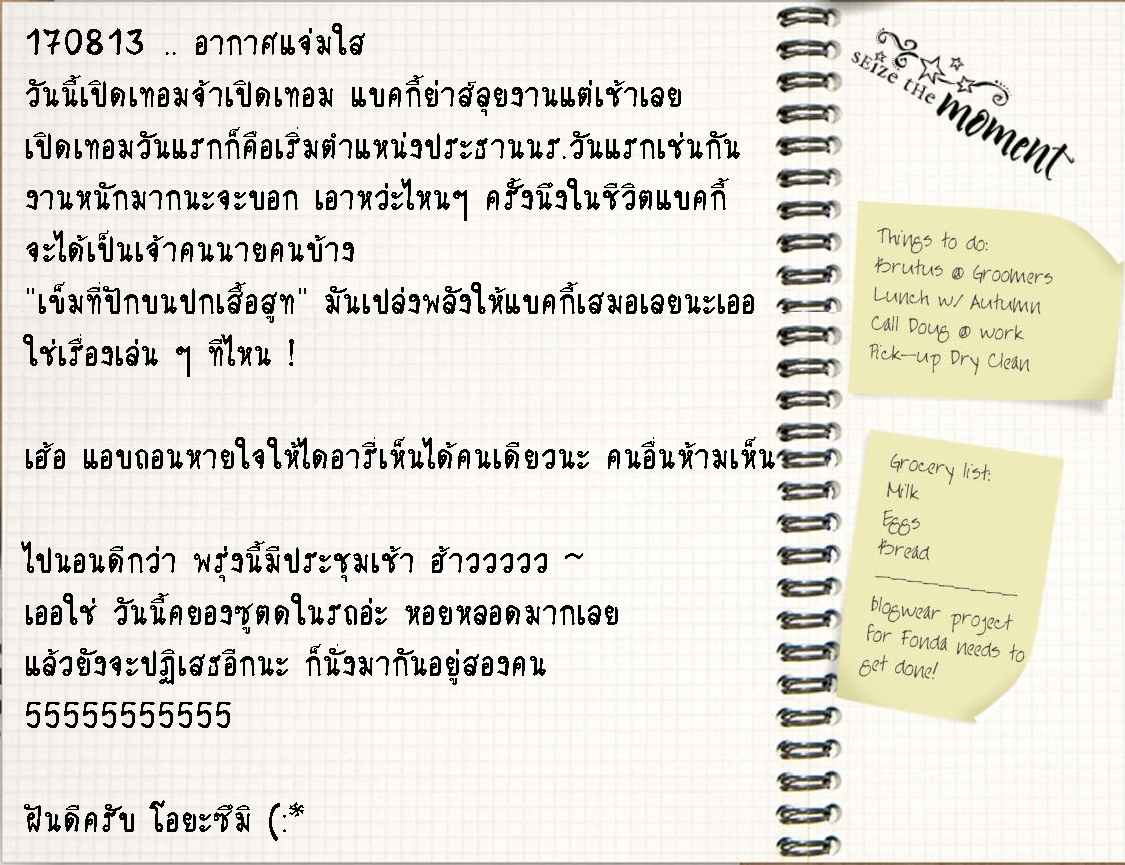 170813 .. อากาศแจ่มใส
วันนี้เปิดเทอมจ้าเปิดเทอม แบคกี้ย่าส์ลุยงานแต่เช้าเลย
เปิดเทอมวันแรกก็คือเริ่มตำแหน่งประธานนร.วันแรกเช่นกัน
งานหนักมากนะจะบอก เอาหว่ะไหนๆ ครั้งนึงในชีวิตแบคกี้
จะได้เป็นเจ้าคนนายคนบ้าง
"เข็มที่ปักบนปกเสื้อสูท" มันเปล่งพลังให้แบคกี้เสมอเลยนะเออ
ใช่เรื่องเล่น ๆ ที่ไหน !
เฮ้อ แอบถอนหายใจให้ไดอารี่เห็นได้คนเดียวนะ คนอื่นห้ามเห็น
ไปนอนดีกว่า พรุ่งนี้มีประชุมเช้า ฮ้าววววว ~
เออใช่ วันนี้คยองซูตดในรถอ่ะ หอยหลอดมากเลย
แล้วยังจะปฏิเสธอีกนะ ก็นั่งมากันอยู่สองคน
55555555555
ฝันดีครับ โอยะซึมิ (:*
SEIZE THE
moment
Things to do:
Brutus @ Groomers
Lunch w/ Autumn
Call Doug @ work
Pick-up Dry Clean
Grocery list:
Milk
Eggs
Bread
blogwear project
for Fonda needs to
get done!